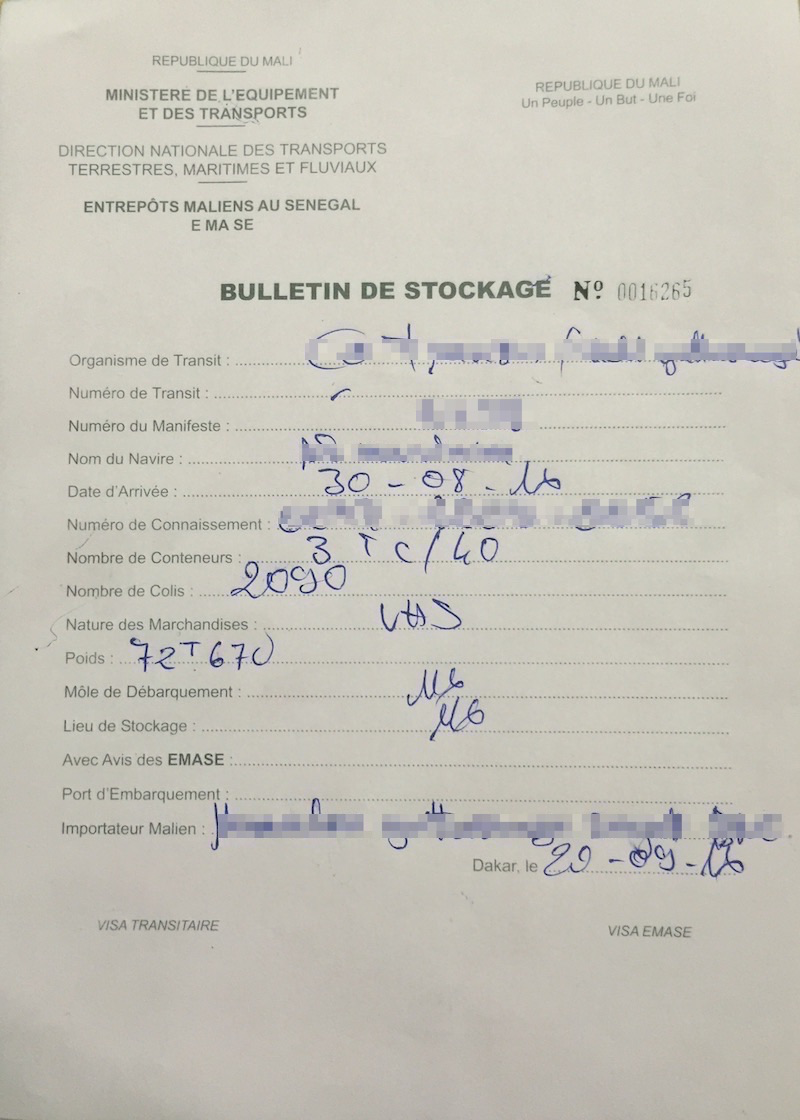 REPUBLIQUE DU MALI
MINISTERE DE L'EQUIPEMENT
ET DES TRANSPORTS
DIRECTION NATIONALE DES TRANSPORTS
TERRESTRES, MARITIMES ET FLUVIAUX
ENTREPÔTS MALIENS AU SENEGAL
E MA SE
REPUBLIQUE DU MALI
Un Peuple - Un But - Une Foi
BULLETIN DE STOCKAGE Nº 0016265
Organisme de Transit :
Numéro de Transit :
Numéro du Manifeste :
Nom du Navire :
Date d'Arrivée : 30 - 08 - 16
Numéro de Connaissement :
Nombre de Conteneurs : 3 T c/40
Nombre de Colis : 2090
Nature des Marchandises :
Poids : 72T670
Môle de Débarquement : M6
Lieu de Stockage : M6
Avec Avis des EMASE :
Port d'Embarquement :
Importateur Malien :
Dakar, le 20 - 09 - 16
VISA TRANSITAIRE
VISA EMASE